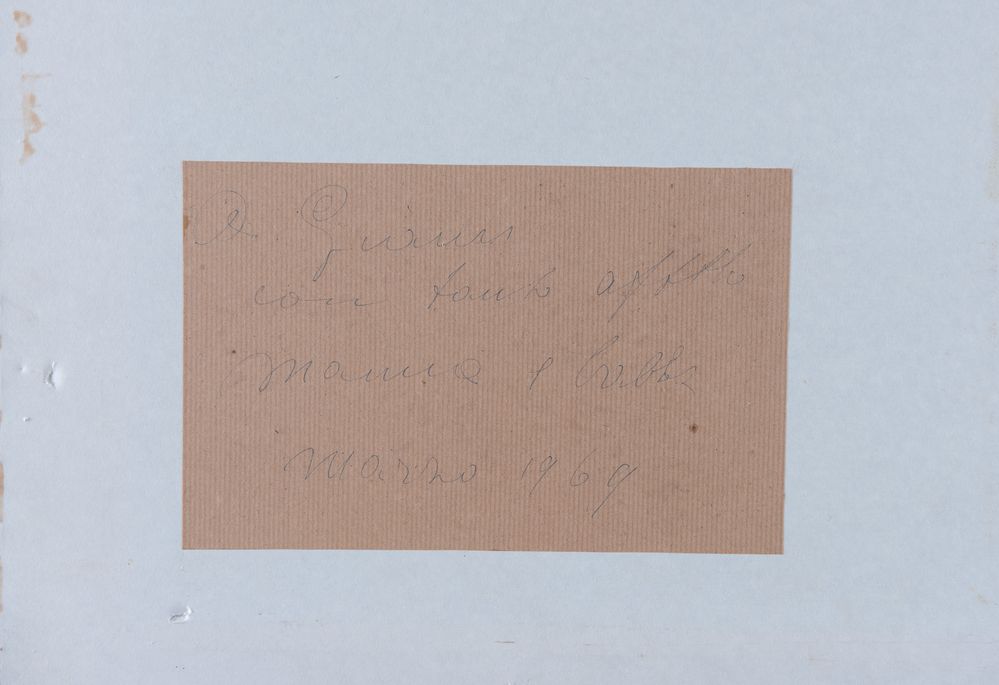 A Gianni
con tanto affetto
mamma e babbo
Marzo 1969